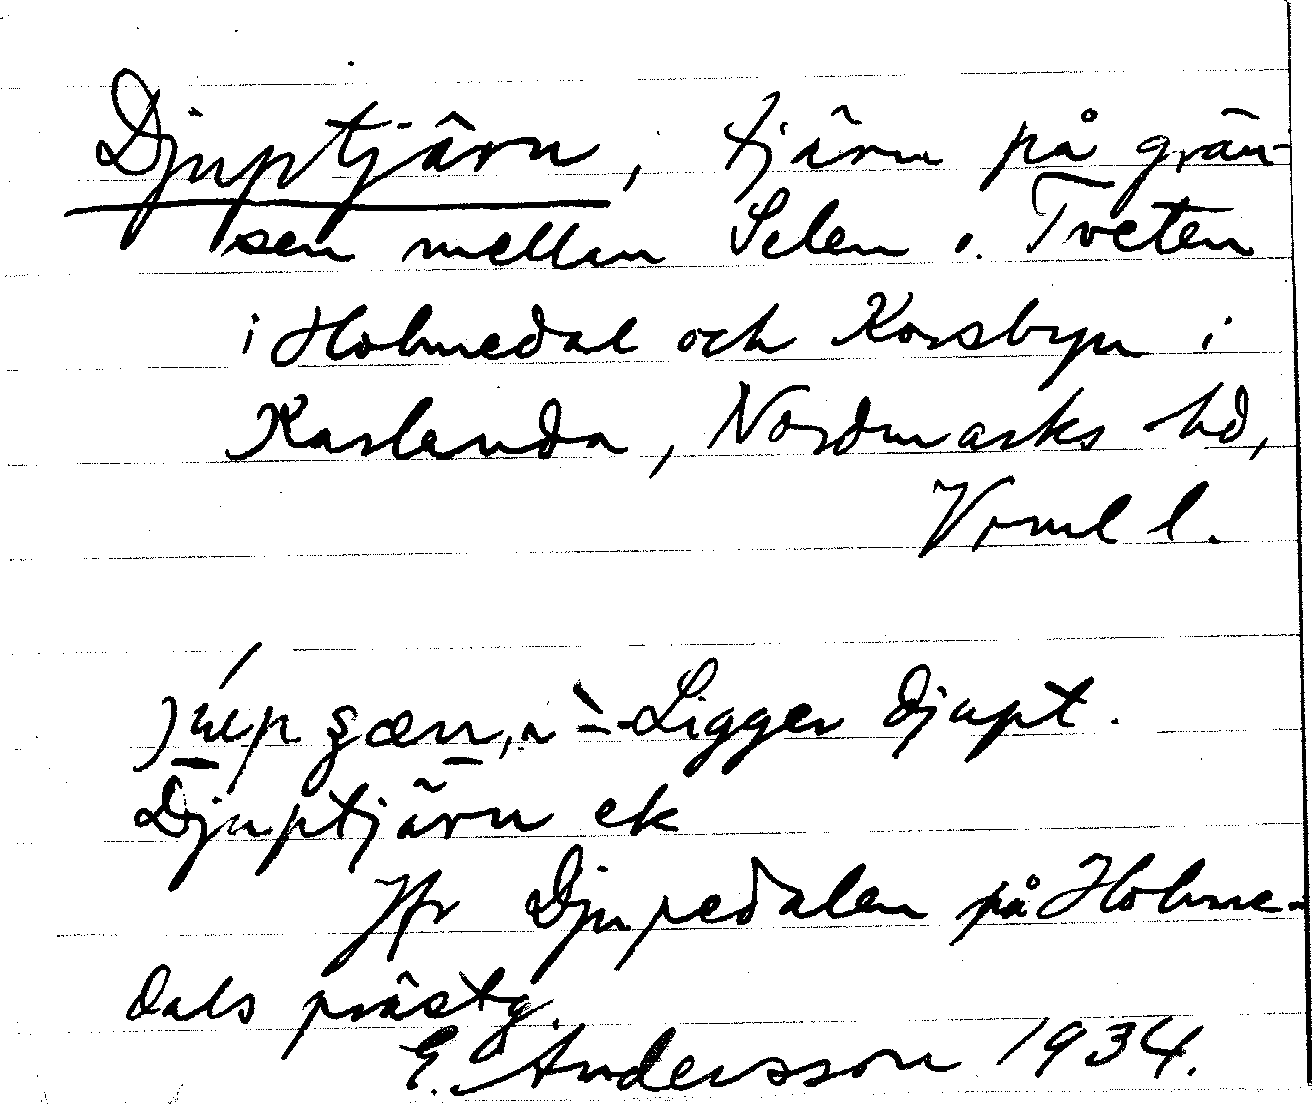 Djuptjärn, tjärn på grän-
sen mellan Selen o. Tveten
i Holmedal och Korsbyn i
Karlanda, Nordmarks hd,
Vrml l.
Ligger djupt.
Djuptjärn ek
Jfr Djupedalen på Holme-
dals prästg.
E. Andersson 1934.